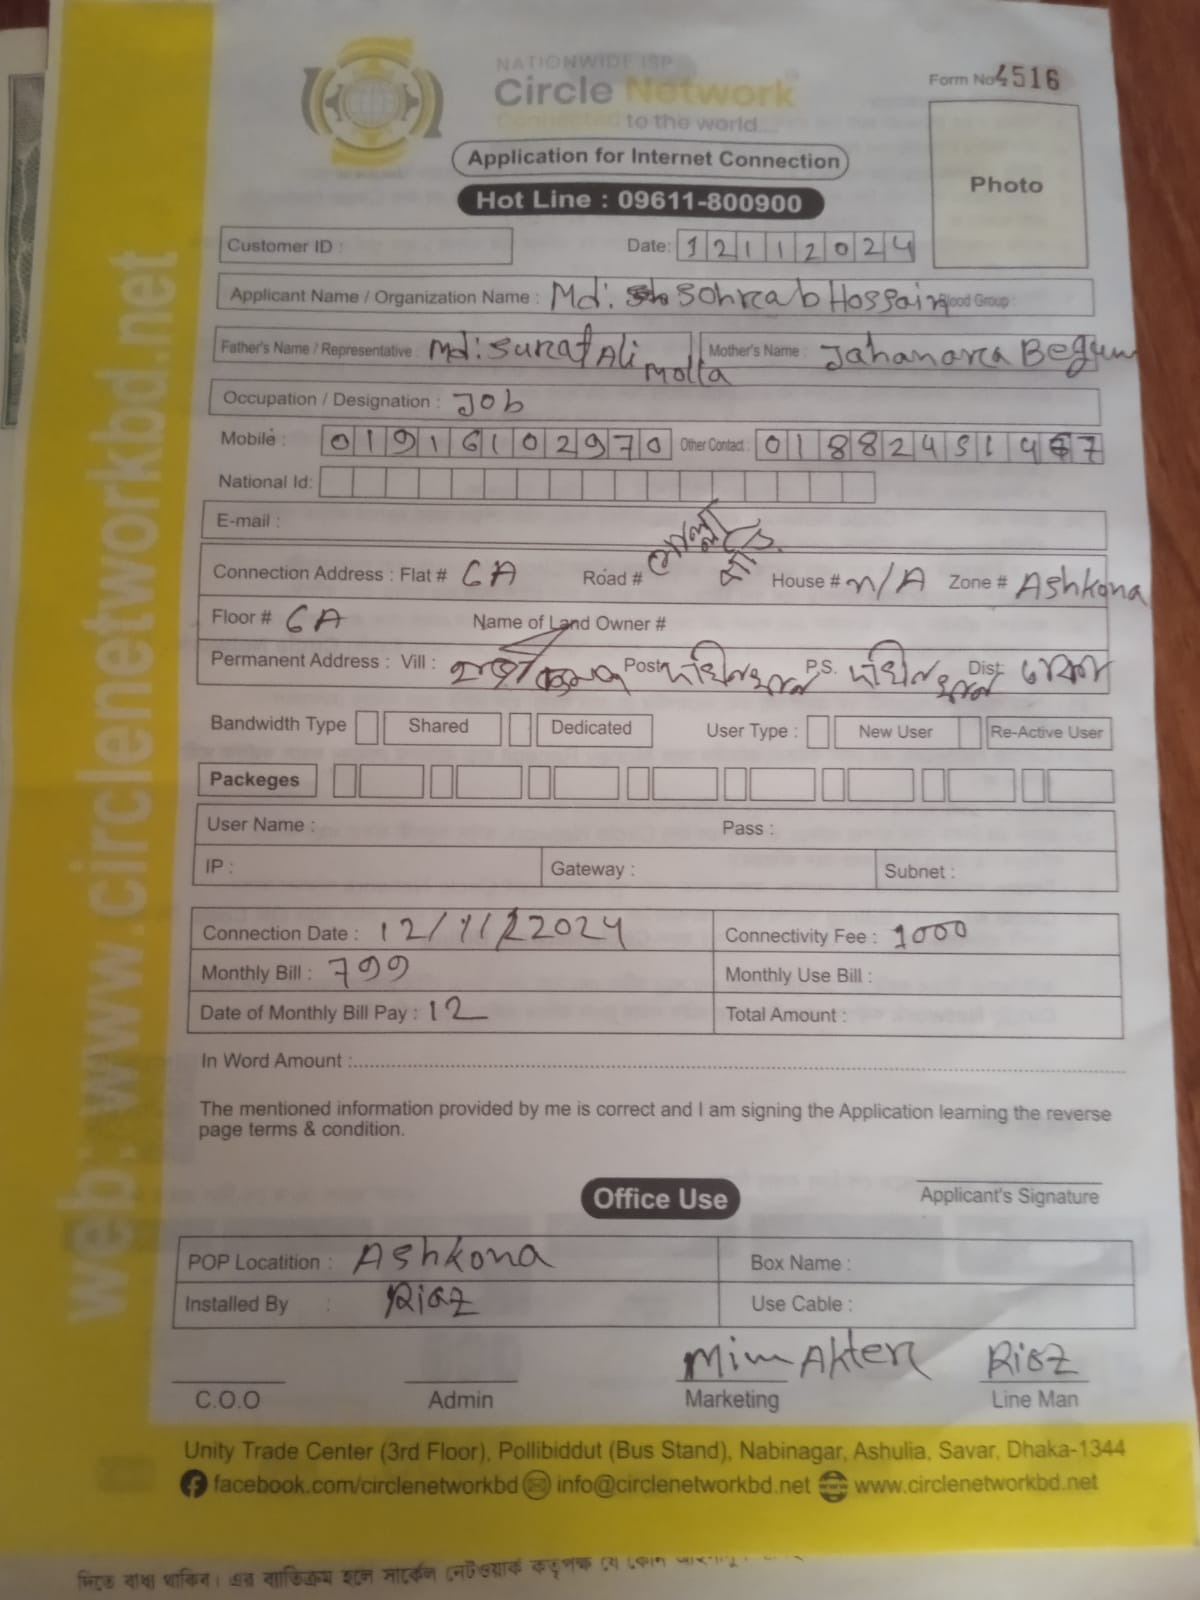 NATIONWIDE ISP
Circle Network
Connected to the world...
Form No 4516
Application for Internet Connection
Photo
Hot Line : 09611-800900
Customer ID :
Date: 12112024
Applicant Name / Organization Name : Md: Sohrab Hossain Blood Group :
Father's Name / Representative : Md: Surat Ali Molla Mother's Name : Jahanara Begum
Occupation / Designation : Job
Mobile : 01916102970 Other Contact : 01882451467
National Id:
E-mail :
Connection Address : Flat # 6A Road # House # n/A Zone # Ashkona
Floor # 6A Name of Land Owner #
Permanent Address : Vill : Post P.S. Dist:
Bandwidth Type Shared Dedicated User Type : New User Re-Active User
Packeges
User Name : Pass :
IP : Gateway : Subnet :
Connection Date : 12/11/2024 Connectivity Fee : 1000
Monthly Bill : 799 Monthly Use Bill :
Date of Monthly Bill Pay : 12 Total Amount :
In Word Amount :
The mentioned information provided by me is correct and I am signing the Application learning the reverse
page terms & condition.
Office Use
Applicant's Signature
POP Locatition : Ashkona Box Name :
Installed By : Riaz Use Cable :
Mim Akter Riaz
C.O.O Admin Marketing Line Man
Unity Trade Center (3rd Floor), Pollibiddut (Bus Stand), Nabinagar, Ashulia, Savar, Dhaka-1344
facebook.com/circlenetworkbd info@circlenetworkbd.net www.circlenetworkbd.net
web: www.circlenetworkbd.net
দিতে বাধ্য থাকিব। এর ব্যতিক্রম হলে সার্কেল নেটওয়ার্ক কতৃপক্ষ যে কোন